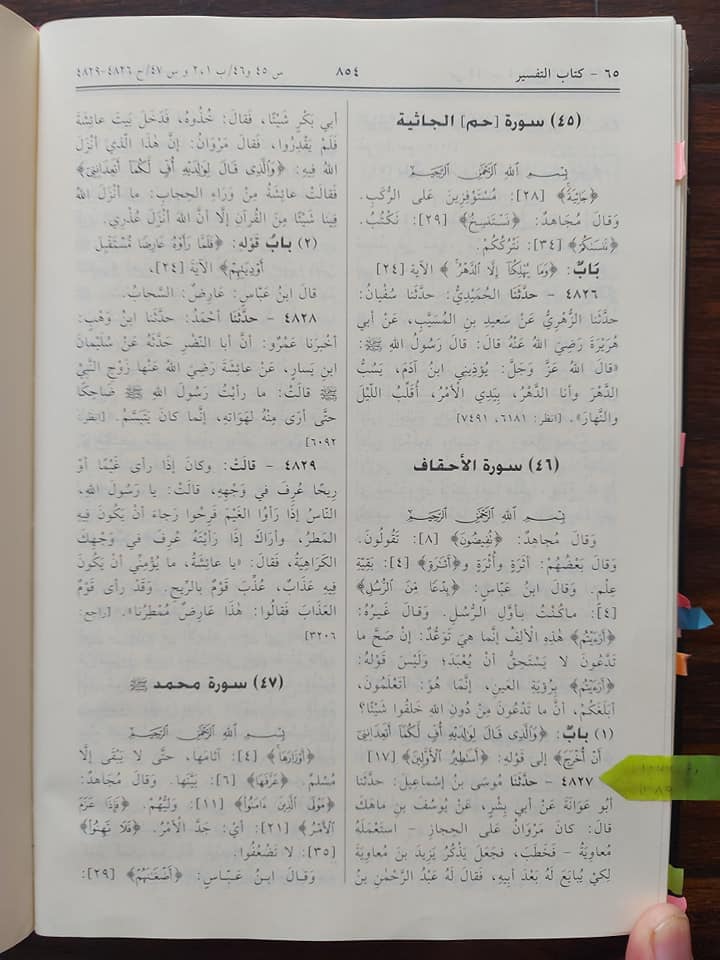 ٦٥ - كتاب التفسير
٨٥٤
س ٤٥ و٤٦/ ب ١،٢ و س ٤٧/ ح ٤٨٢٦-٤٨٢٩
(٤٥) سورة [حم] الجاثية
بِسْمِ اللهِ الرَّحْمٰنِ الرَّحِيْمِ
﴿جَاثِيَةً﴾ [٢٨]: مُسْتَوْفِزِينَ عَلى الرُّكَبِ.
وَقَالَ مُجَاهِدٌ: ﴿نَسْتَنسِخُ﴾ [٢٩]: نَكْتُبُ.
﴿نَنسَىٰكُمْ﴾ [٣٤]: نَتْرُكُكُمْ.
بَابٌ: ﴿وَمَا يُهْلِكُنَآ إِلَّا ٱلدَّهْرُ﴾ الآية [٢٤]
٤٨٢٦ - حدَّثَنَا الحُمَيْدِيُّ: حدثَنا سُفْيانُ:
حدَّثَنا الزُّهْرِيُّ عَنْ سَعِيدِ بنِ المُسَيَّبِ، عَنْ أبي
هُرَيْرَةَ رَضِيَ اللهُ عَنْهُ قَالَ: قَالَ رَسُولُ اللهِ ﷺ:
«قالَ اللهُ عَزَّ وَجَلَّ: يُؤذِيني ابنُ آدَمَ، يَسُبُّ
الدَّهْرَ وأنا الدَّهْرُ، بِيَدِي الأمْرُ، أُقَلِّبُ اللَّيْلَ
والنَّهارَ». [انظر: ٦١٨١، ٧٤٩١]
(٤٦) سورة الأحقاف
بِسْمِ اللهِ الرَّحْمٰنِ الرَّحِيْمِ
وَقَالَ مُجاهِدٌ: ﴿تُفِيضُونَ﴾ [٨]: تَقُولُونَ.
وقَالَ بَعْضُهُمْ: أَثَرَةٍ وأُثْرَةٍ و﴿أَثَٰرَةٍ﴾ [٤]: بَقِيَّةِ
عِلْمٍ. وقَالَ ابنُ عبَّاسٍ: ﴿بِدْعًا مِّنَ ٱلرُّسُلِ﴾
[٤]: ماكُنْتُ بأوَّلِ الرُّسُلِ. وَقَالَ غَيرُهُ:
﴿أَرَءَيْتُمْ﴾ هٰذِهِ الألِفُ إنَّما هِيَ تَوَعُّدٌ: إنْ صَحَّ ما
تَدَّعُونَ لا يَسْتَحِقُّ أنْ يُعْبَدَ؛ وَلَيْسَ قَوْلُهُ:
﴿أَرَءَيْتُمْ﴾ بِرُؤيَةِ العَينِ، إنَّمَا هُوَ: أتَعْلَمُونَ،
أبَلَغَكُمْ، أنَّ ما تَدْعُونَ مِنْ دُونِ اللهِ خلَقُوا شَيْئًا؟
(١) بابٌ: ﴿وَٱلَّذِى قَالَ لِوَٰلِدَيْهِ أُفٍّ لَّكُمَآ أَتَعِدَانِنِىٓ
أَنْ أُخْرَجَ﴾ إلى قَوْلِهِ: ﴿أَسَٰطِيرُ ٱلْأَوَّلِينَ﴾ [١٧]
٤٨٢٧ - حدَّثَنَا مُوسَى بنُ إسْماعِيلَ: حدَّثَنا
أَبُو عَوَانَةَ عَنْ أبي بِشْرٍ، عَنْ يُوسُفَ بنِ مَاهَكَ
قالَ: كانَ مَرْوَانُ عَلى الحِجازِ - اسْتَعْمَلَهُ
مُعاوِيَةُ - فَخَطَبَ، فَجَعَلَ يَذْكُرُ يَزيدَ بنَ مُعاويَةَ
لِكَيْ يُبايَعَ لَهُ بَعْدَ أبيهِ، فَقالَ لَهُ عَبْدُ الرَّحْمٰنِ بنُ
أبي بَكْرٍ شَيْئًا، فَقالَ: خُذُوهُ، فَدَخَلَ بَيتَ عائِشَةَ
فَلَمْ يَقْدِرُوا، فَقالَ مَرْوَانُ: إنَّ هٰذَا الَّذِي أنْزَلَ
اللهُ فِيهِ: ﴿وَٱلَّذِى قَالَ لِوَٰلِدَيْهِ أُفٍّ لَّكُمَآ أَتَعِدَانِنِىٓ﴾
فَقالَتْ عائِشَةُ مِنْ وَرَاءِ الحِجابِ: ما أنْزَلَ اللهُ
فِينا شَيْئًا مِنَ القُرآنِ إلَّا أنَّ اللهَ أنْزَلَ عُذْرِي.
(٢) بابُ قَوْلِهِ: ﴿فَلَمَّا رَأَوْهُ عَارِضًا مُّسْتَقْبِلَ
أَوْدِيَتِهِمْ﴾ الآيَةَ [٢٤].
قالَ ابنُ عَبَّاسٍ: عَارِضٌ: السَّحابُ.
٤٨٢٨ - حدَّثَنا أحْمَدُ: حدَّثَنا ابنُ وَهْبٍ:
أخْبرَنا عَمْرٌو: أنَّ أبا النَّضْرِ حَدَّثَهُ عَنْ سُلَيْمَانَ
ابنِ يَسارٍ، عَنْ عائِشَةَ رَضِيَ اللهُ عَنْهَا زَوْجِ النَّبيِّ
ﷺ قالَتْ: ما رأيْتُ رَسُولَ اللهِ ﷺ ضَاحِكًا
حتَّى أرَى مِنْهُ لَهَوَاتِهِ، إنَّما كانَ يَتَبَسَّمُ. [انظر:
٦٠٩٢]
٤٨٢٩ - قالَتْ: وكانَ إذَا رأى غَيْمًا أوْ
رِيحًا عُرِفَ في وَجْهِهِ، قالَتْ: يا رَسُولَ اللهِ،
النَّاسُ إذَا رَأوُا الغَيْمَ فَرِحُوا رَجاءَ أنْ يَكُونَ فِيهِ
المَطَرُ، وأرَاكَ إذَا رَأيْتَهُ عُرِفَ في وَجْهِكَ
الكَرَاهِيَةُ، فَقالَ: «يا عائِشَةُ، ما يُؤْمِنِّي أنْ يَكُونَ
فيهِ عَذَابٌ، عُذِّبَ قَوْمٌ بالرِّيحِ. وَقَدْ رأى قَوْمٌ
العَذَابَ فَقالُوا: هٰذَا عَارِضٌ مُمْطِرُنا». [راجع:
٣٢٠٦]
(٤٧) سورة محمد ﷺ
بِسْمِ اللهِ الرَّحْمٰنِ الرَّحِيْمِ
﴿أَوْزَارَهَا﴾ [٤]: آثامَها، حتَّى لا يَبْقَى إلَّا
مُسْلمٌ. ﴿عَرَّفَهَا﴾ [٦]: بَيَّنَها. وقَالَ مُجاهِدٌ:
﴿مَوْلَى ٱلَّذِينَ ءَامَنُوا۟﴾ [١١]: وَلِيُّهُمْ. ﴿فَإِذَا عَزَمَ
ٱلْأَمْرُ﴾ [٢١]: أيْ: جَدَّ الأمْرُ. ﴿فَلَا تَهِنُوا۟﴾
[٣٥]: لا تَضْعُفُوا.
وَقَالَ ابنُ عبَّاسٍ: ﴿أَضْغَٰنَهُمْ﴾ [٢٩]: